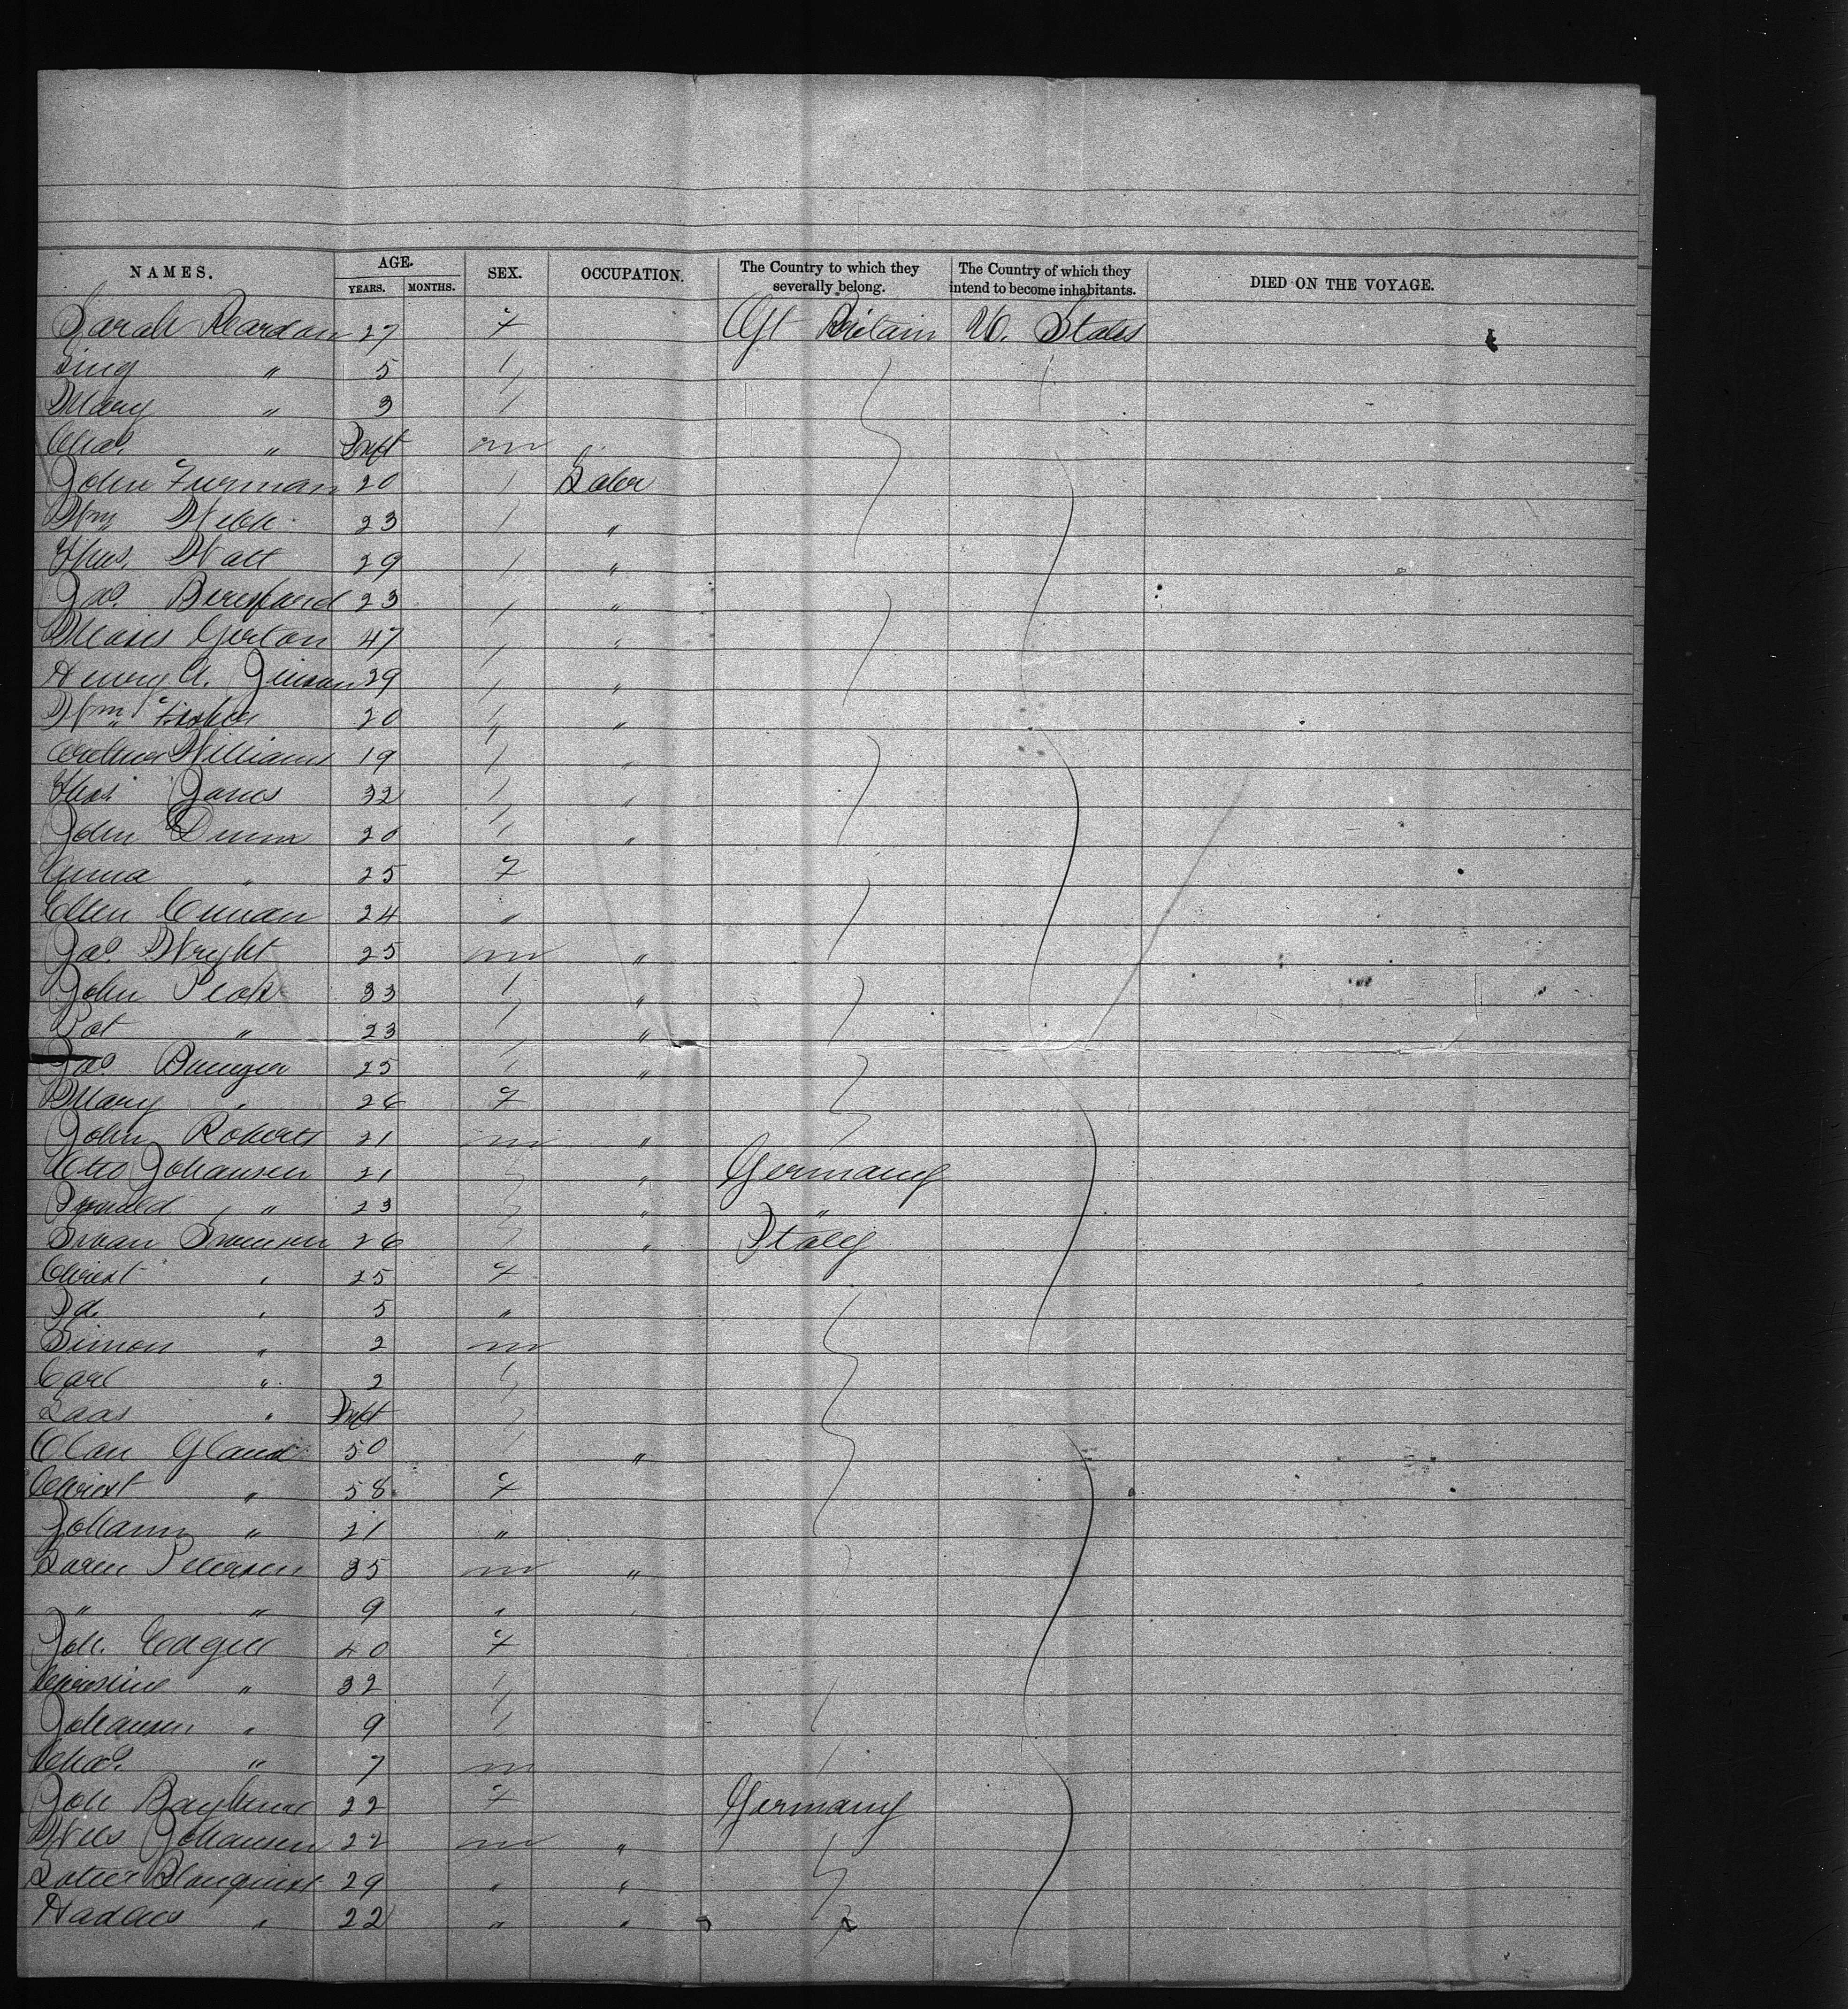 NAMES. AGE. YEARS. MONTHS. SEX. OCCUPATION. The Country to which they severally belong. The Country of which they intend to become inhabitants. DIED ON THE VOYAGE.
Sarah Reardan 27 f Gt Britain U. States
5
Mary " 3
Chas. " Inft m
John Furman 20 Labr
Wm Webb 23 "
Thos. Watt 29 "
Jas. Beresford 23 "
Moses Gerton 47 "
Henry A. 29 "
Wm Fisher 20 "
Williams 19 "
Thos Jones 32 "
John Dunn 20 "
Anna " 25 f
Ellen 24 "
Jas. Wright 25 m "
John Peak 33 "
Pat " 23 "
Jas 25 "
Mary " 26 f
John Roberts 21 m "
Otto Johansen 21 " Germany
" 23 " "
Swan Swensen 26 " Italy
Christ " 25 f
Id. " 5 "
Simon " 2 m
Carl " 2
Laas " Inft
Olan 50 "
Christ " 58 f
Johann " 21 "
Soren Petersen 35 m "
" " 9 "
Joh. 40 f
Christine " 32
Johansen " 9
Chas. " 7 m
Joh 22 f Germany
Nels Johansen 22 m "
29 " "
" 22 " "